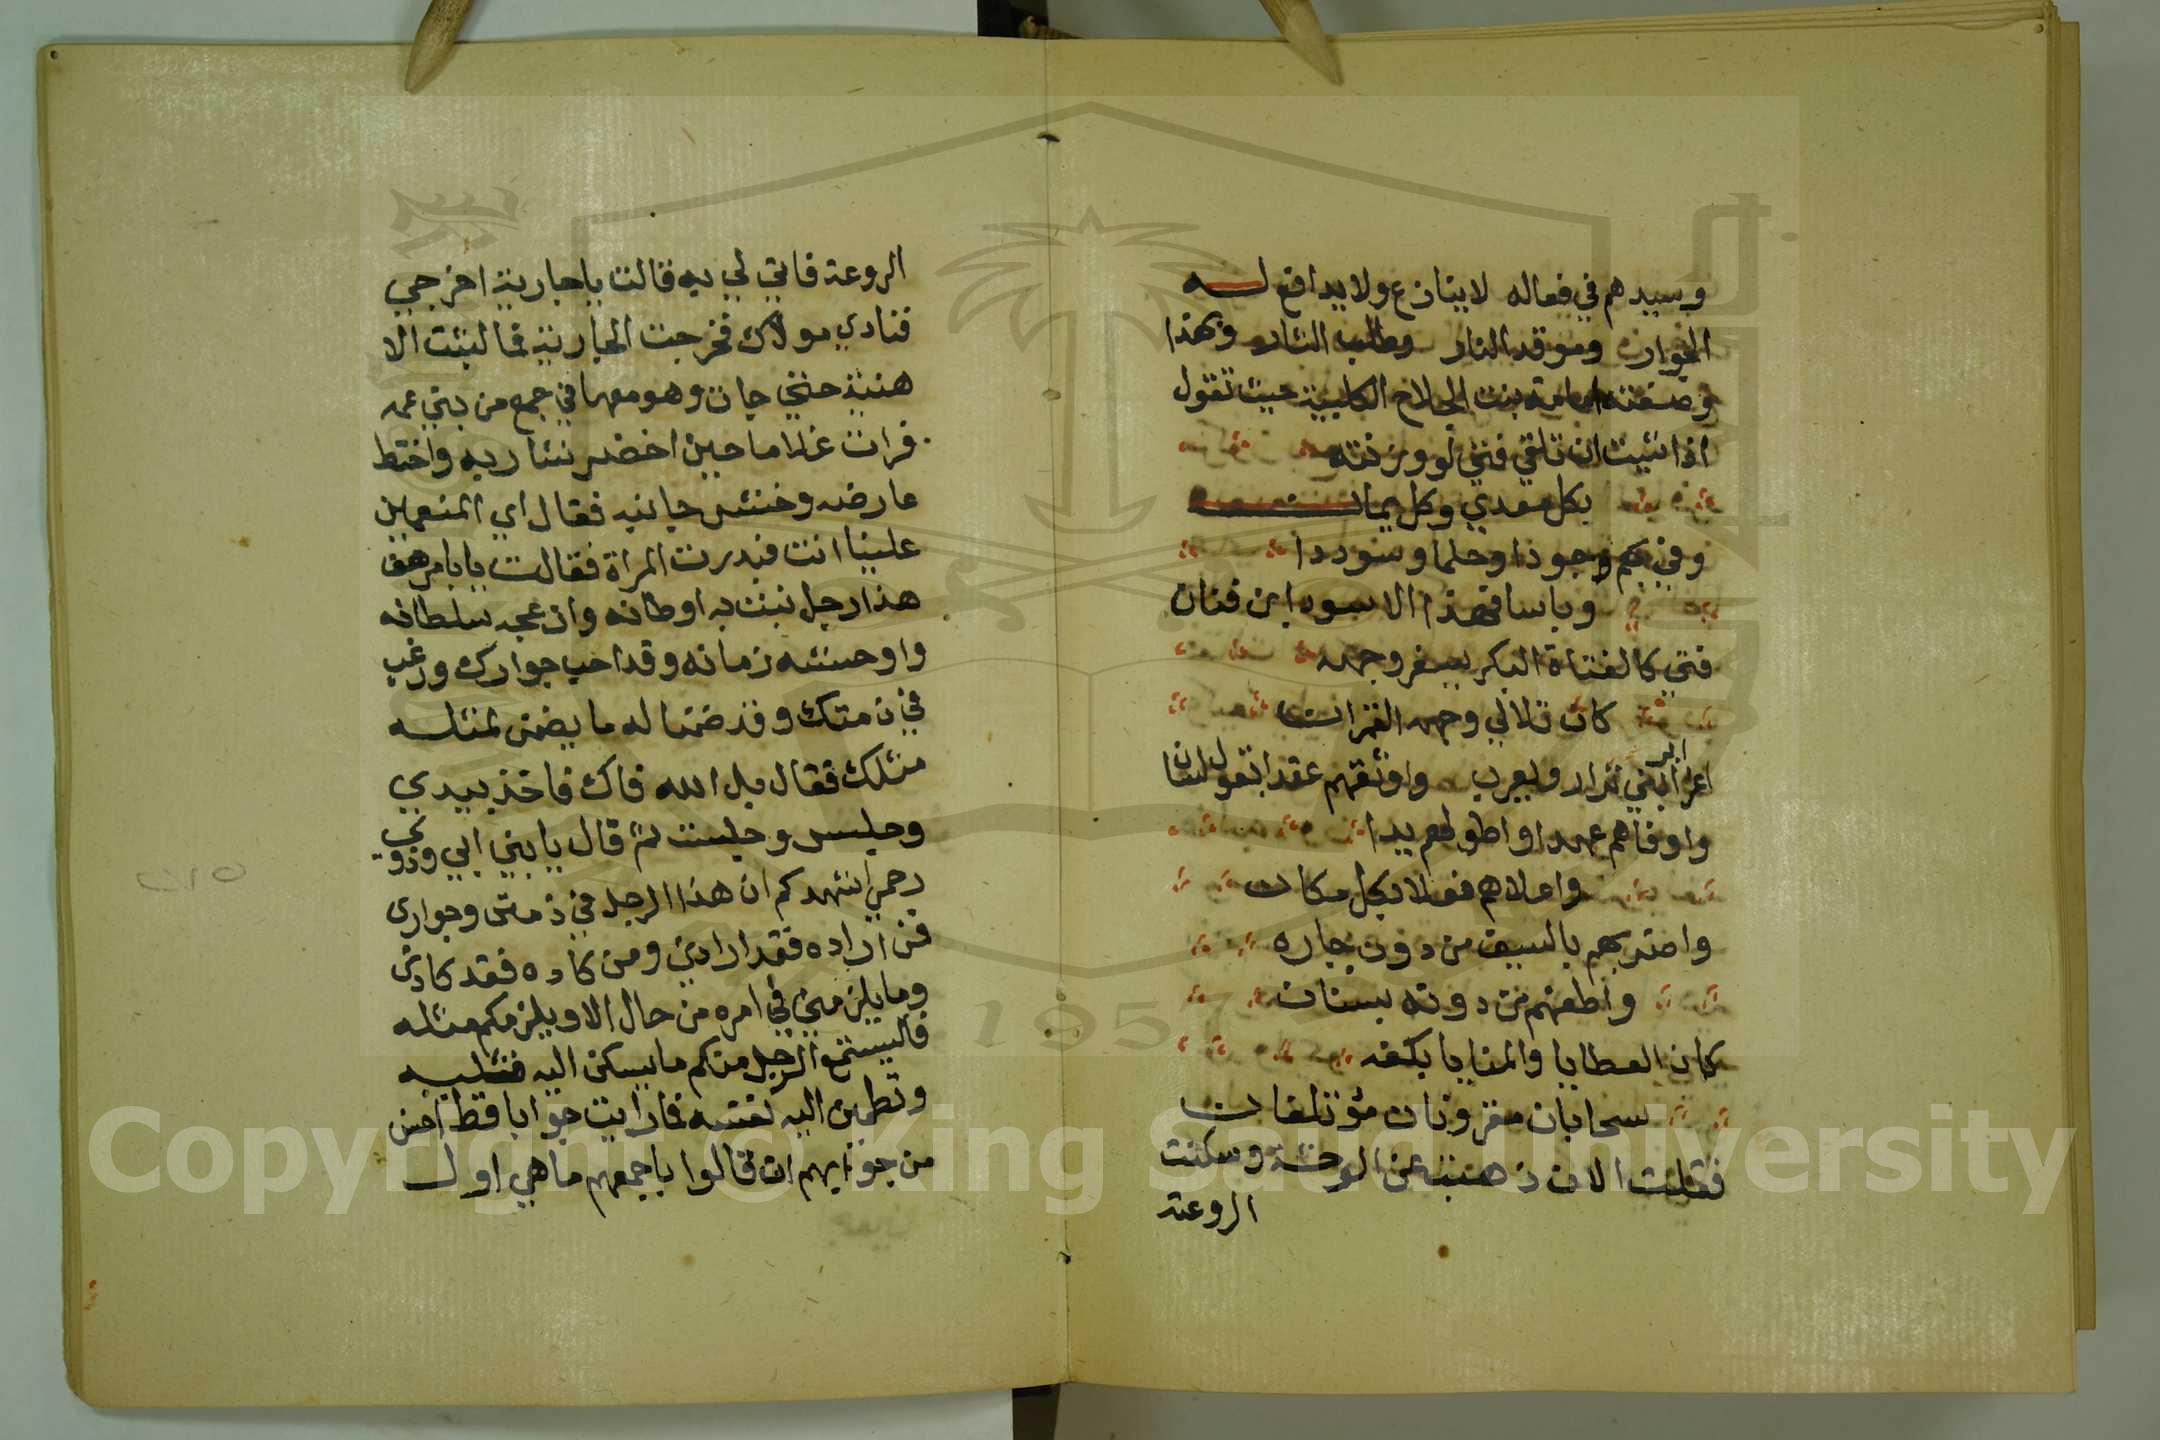 وسيدهم في فعاله لاينازع ولايدافع لـه
الجواره وموقد النار وطالب الثار وبهذا
وصفته امامة بنت الجلاح الكلبية حيث تقول
اذا شيت ان تلقي فتي لو وزنته
بكل معدي وكل يمان
وفي بهم جودا وحلما وسوددا
وباسا فهذا الاسود ابن قنان
فتي كالفتاة البكر يسفر وجهه
كان تلالي وجهه القمران
اعز ابر ابني نزار ويعرب واوثقهم عقدا بقول لسان
واوفاهم عهدا واطولهم يدا
واعلاهم فعلا بكل مكان
واضربهم بالسيف من دون جاره
واطعنهم من دونه بسنان
كان العطايا والمنايا بكفه
سحابان مقرونان مؤتلفان
فقلت الان ذهبت عن الوحشة وسكنت
الروعة
الروعة فاتي لي به قالت ياجارية اخرجي
فنادي مولاك فخرجت الجارية فما لبثت الا
هنية حتي جات وهو معها في جمع من بني عمه
فرات غلاما حين اخضر شاربه واختط
عارضه وخشن جانبه فقال اي المنعمين
علينا انت فبدرت المراة فقالت يابا مرهف
هذا رجل نبت به اوطانه وازعجه سلطانه
واوحشه زمانه وقد احب جوارك ورغب
في ذمتك وقد ضمنا له ما يضمن لمثله
مثلك فقال بل الله فاك فاخذ بيدي
وجلس وجلست ثم قال يابني ابي وذوي
رحمي اشهدكم ان هذا الرجل في ذمتي وجواري
فمن اراده فقد ارادني ومن كاده فقد كادني
ومايلزمني في امره من حال الا ويلزمكم مثله
فاليسمع الرجل منكم مايسكن اليه قلبه
وتطمين اليه نفسه فما رايت جوابا قط احسن
من جوابهم ان قالوا باجمعهم ما هي اول